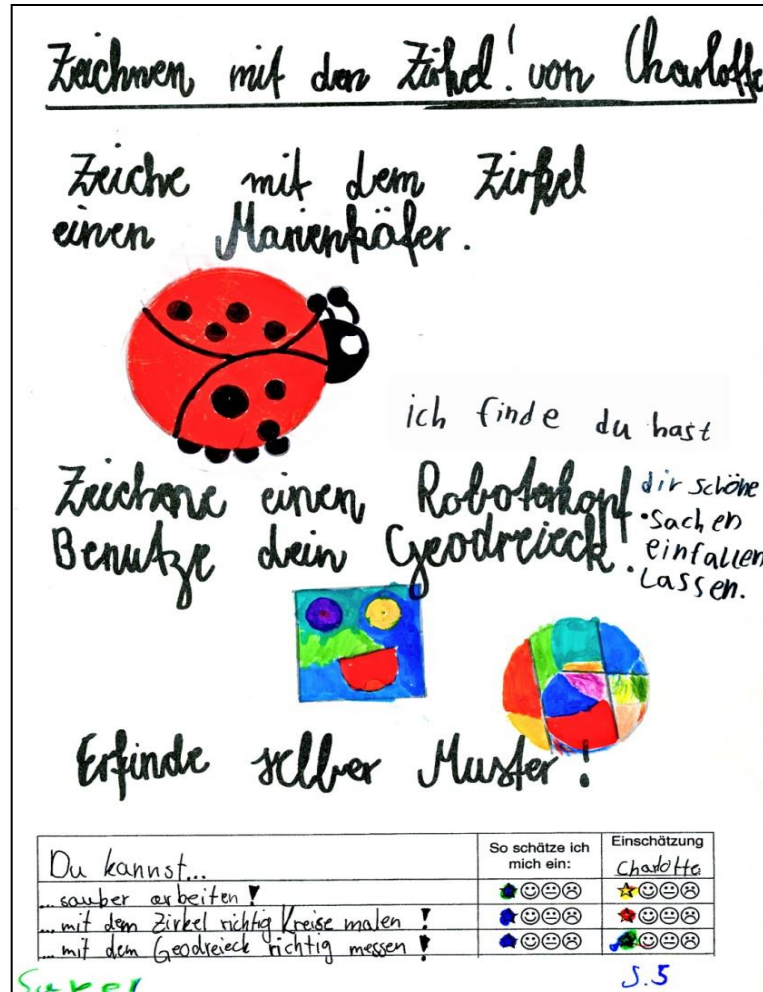 Zeichnen mit den Zirkel! von Charlotte
Zeiche mit dem Zirkel
einen Marienkäfer.
ich finde du hast
dir schöne
Sachen
einfallen
Lassen.
Zeichene einen Roboterkopf
Benutze dein Geodreieck.
Erfinde selber Muster!
Du kannst...
So schätze ich
mich ein:
Einschätzung
Charlotte
...sauber arbeiten!
...mit dem Zirkel richtig Kreise malen!
...mit dem Geodreieck richtig messen!
Super
S.5